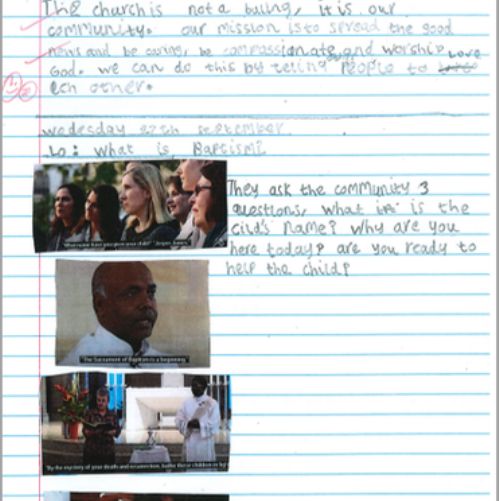 The church is not a builing, it is our
community. our mission is to spread the good
news and be caring, be compassionate, and worship
God. we can do this by teling people to love
ech other.
wedesday 27th september
Lo: What is Baptism?
They ask the community 3
questions, what is the
cild's name? Why are you
here today? are you ready to
help the child?
"What name have you given your child?"
"The Sacrament of Baptism is a beginning"
"By the mystery of your death and resurrection, bathe these children in light